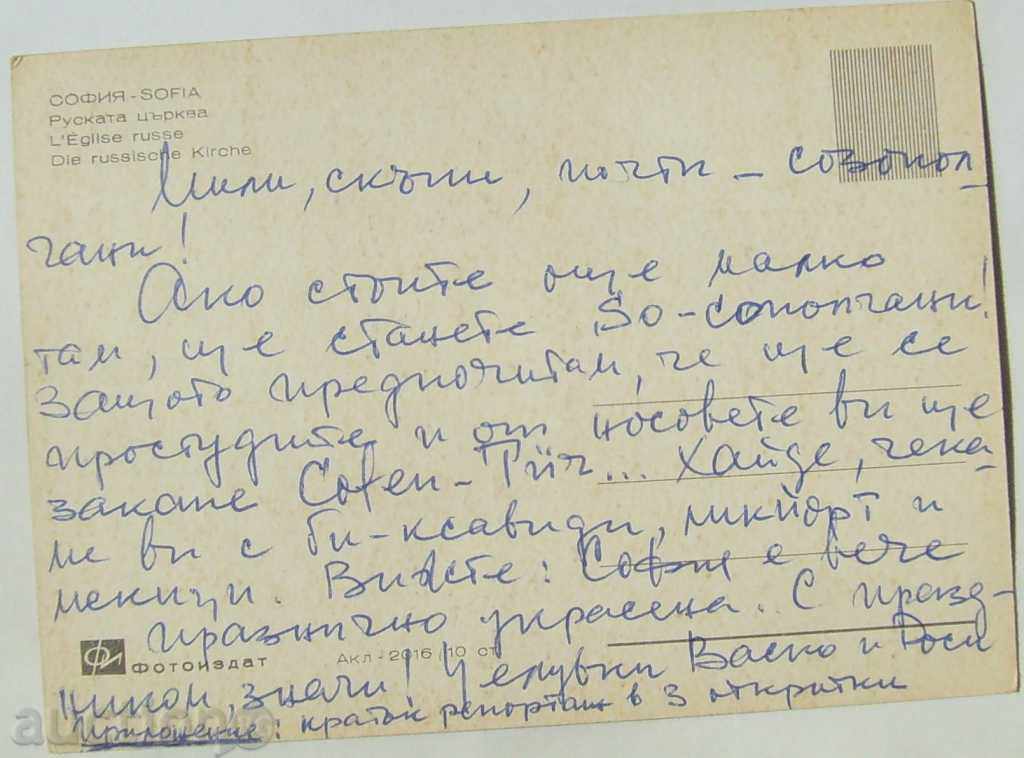 СОФИЯ - SOFIA
Руската църква
L'Église russe
Die russische Kirche
Мили, скъпи, почти - созопол-
чани!
Ако стоите още малко
там, ще станете So-сополчани!
Защото предпочитам, че ще се
простудите и от носовете ви ще
закапе ... Хайде, чека-
ме ви с би-ксавиди, и
мекици. Вижте: София е вече
празнично украсена. С празд-
ником, значи! Целувки Васко и Роси
Приложение: кратък репортаж в 3 откритки
ФОТОИЗДАТ
Акл - 2016 / 10 ст